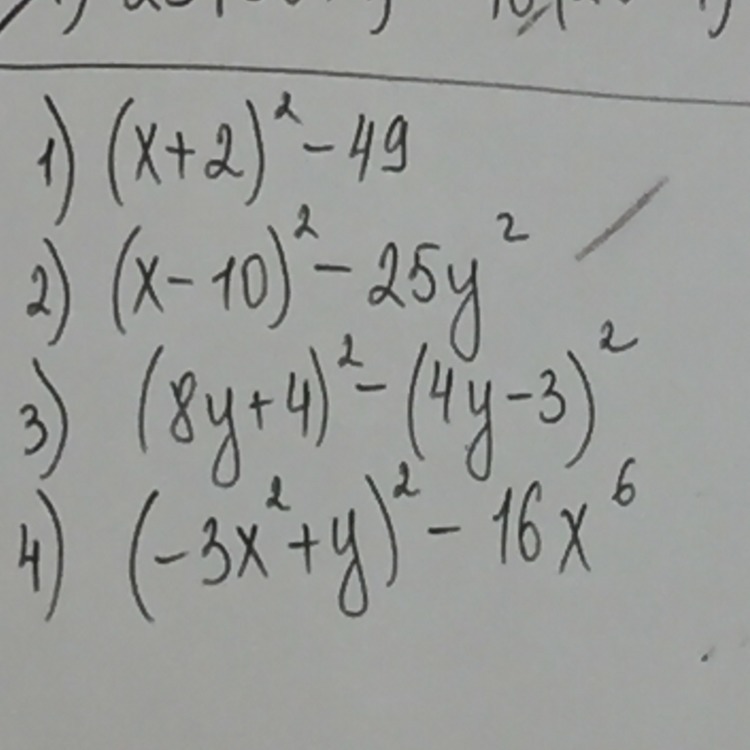 1) (x+2)² - 49
2) (x - 10)² - 25y²
3) (8y+4)² - (4y-3)²
4) (-3x²+y)² - 16x⁶